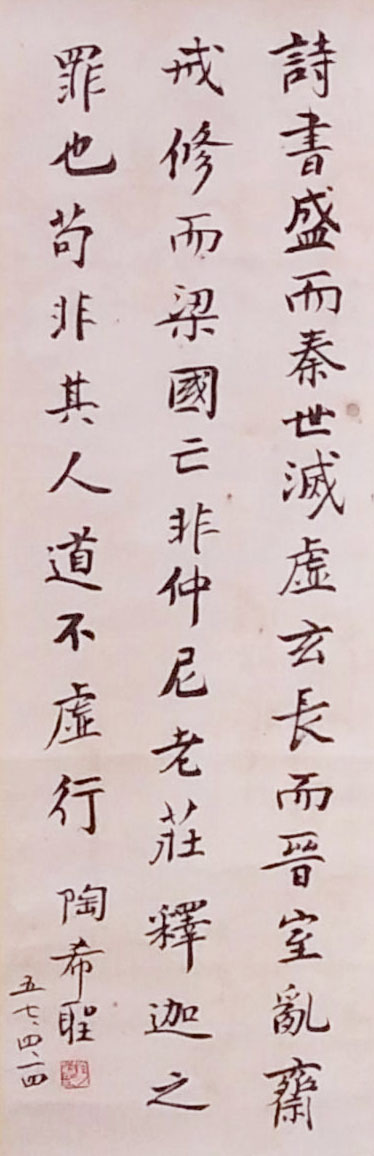 詩書盛而秦世滅虛玄長而晉室亂齋
戒修而梁國亡非仲尼老莊釋迦之
罪也苟非其人道不虛行 陶希聖
五七、四、一四